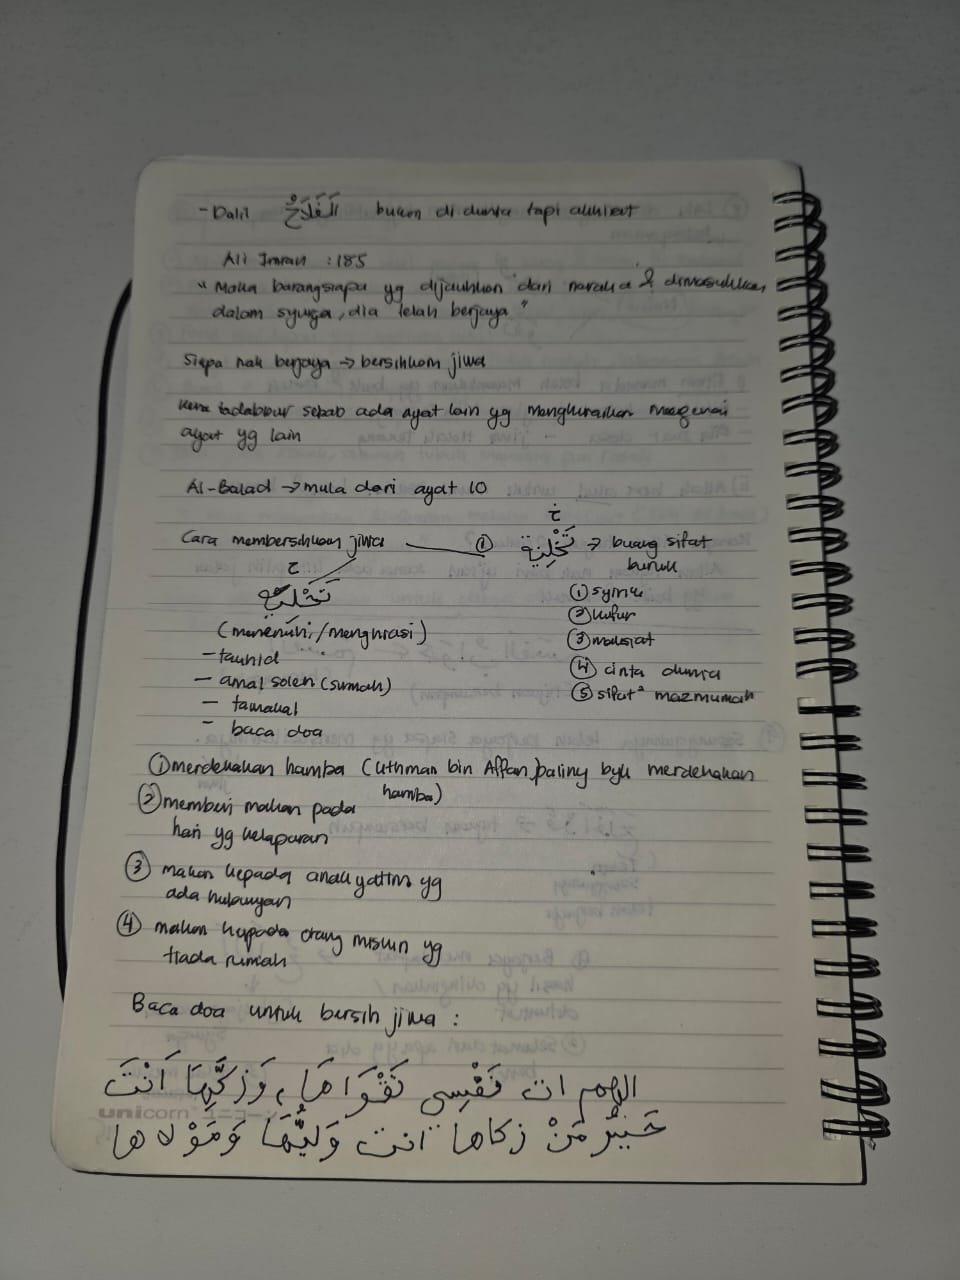 - Dalil اَلْفَلَاحُ bukan di dunia tapi akhirat
Ali Imran : 185
"Maka barangsiapa yg dijauhkan dari neraka & dimasukkan
dalam syurga, dia telah berjaya"
Siapa nak berjaya → bersihkan jiwa
kena tadabbur sebab ada ayat lain yg menghuraikan mengenai
ayat yg lain
Al-Balad → mula dari ayat 10
خ
Cara membersihkan jiwa ① تَخْلِيَة → buang sifat
buruk
ح
تَحْلِيَة
(memenuhi/menghiasi)
- tauhid
- amal soleh (sunnah)
- tawakal
- baca doa
① syirik
② kufur
③ maksiat
④ cinta dunia
⑤ sifat² mazmumah
① merdekakan hamba (Uthman bin Affan, paling byk merdekakan
hamba)
② memberi makan pada
hari yg kelaparan
③ makan kepada anak yatim yg
ada hubungan
④ makan kepada orang miskin yg
tiada rumah
Baca doa untuk bersih jiwa :
اللهم ات نَفْسِي تَقْوَاهَا، وَزَكِّهَا اَنْتَ
خَيْرُ مَنْ زكاها انت وَلِيُّهَا وَمَوْلاها
unicorn ユニコーン